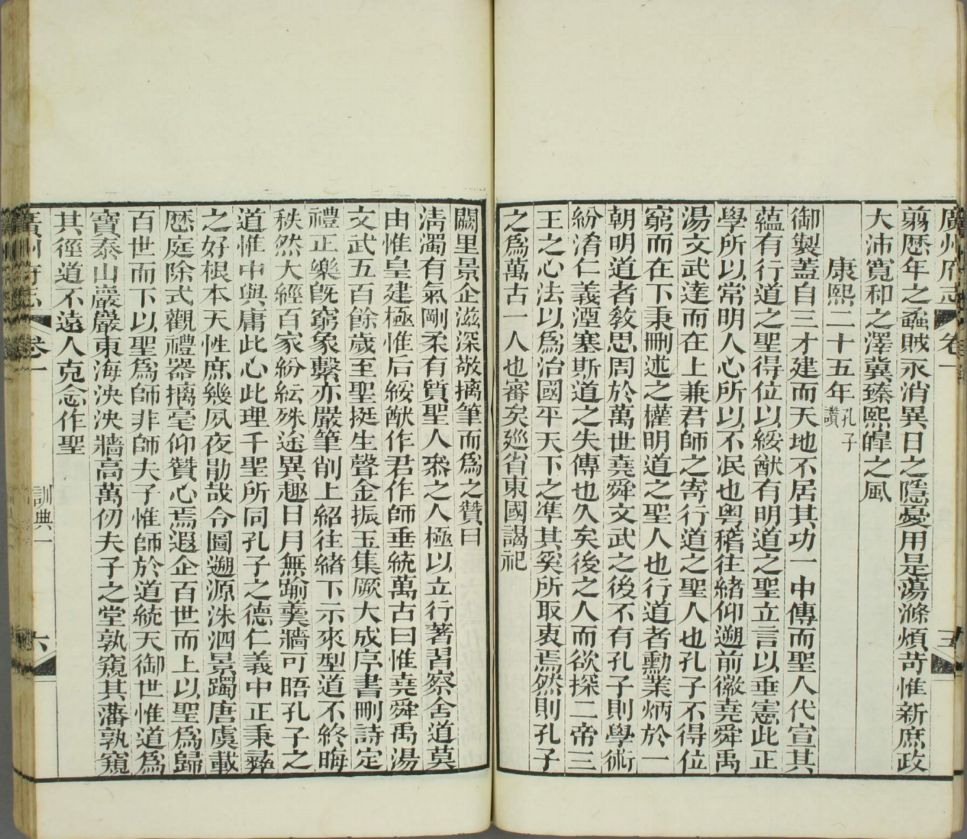 廣州府志 卷一 五
翦歷年之蟊賊永消異日之隱憂用是蕩滌煩苛惟新庶政
大沛寬和之澤冀臻熙皥之風
康熙二十五年孔子贊
御製蓋自三才建而天地不居其功一中傳而聖人代宣其
蘊有行道之聖得位以綏猷有明道之聖立言以垂憲此正
學所以常明人心所以不泯也粵稽往緒仰遡前徽堯舜禹
湯文武達而在上兼君師之寄行道之聖人也孔子不得位
窮而在下秉刪述之權明道之聖人也行道者勳業炳於一
朝明道者敎思周於萬世堯舜文武之後不有孔子則學術
紛淆仁義湮塞斯道之失傳也久矣後之人而欲探二帝三
王之心法以爲治國平天下之準其奚所取衷焉然則孔子
之爲萬古一人也審矣廵省東國謁祀
闕里景企滋深敬摛筆而爲之贊曰
淸濁有氣剛柔有質聖人叅之人極以立行著習察舍道莫
由惟皇建極惟后綏猷作君作師垂統萬古曰惟堯舜禹湯
文武五百餘歲至聖挺生聲金振玉集厥大成序書刪詩定
禮正樂旣窮象繫亦嚴筆削上紹往緒下示來型道不終晦
秩然大經百家紛紜殊途異趣日月無踰羹牆可晤孔子之
道惟中與庸此心此理千聖所同孔子之德仁義中正秉彝
之好根本天性庶幾夙夜勖哉令圖遡源洙泗景躅唐虞載
歷庭除式觀禮器摛毫仰贊心焉遐企百世而上以聖爲歸
百世而下以聖爲師非師夫子惟師於道統天御世惟道爲
寶泰山巖巖東海泱泱牆高萬仞夫子之堂孰窺其藩孰窺
其徑道不遠人克念作聖
廣州府志 卷一 訓典一 六